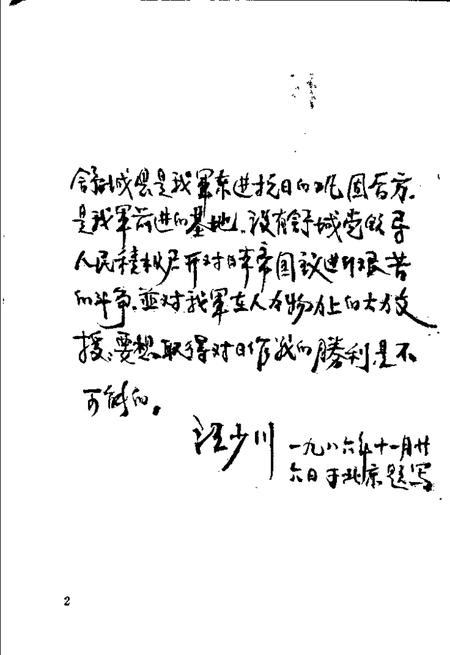 舒城县是我军东进抗日的巩固后方，
是我军前进的基地，没有舒城党领导
人民积极展开对日本帝国主义进行艰苦
的斗争，並对我军在人力物力上的大力支
援，要想取得对日作战的勝利是不
可能的。
汪少川
一九八六年十一月廿
六日于北京题写
2